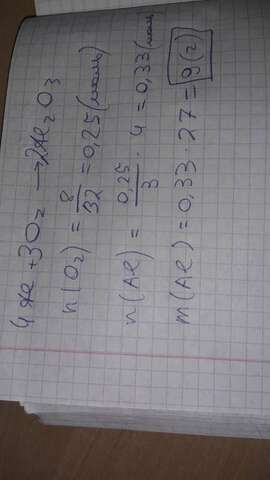 4 Al + 3O₂ → 2Al₂O₃
n(O₂) = 8/32 = 0,25 (моль)
n(Al) = 0,25/3 · 4 = 0,33 (моль)
m(Al) = 0,33 · 27 = 9 (г)